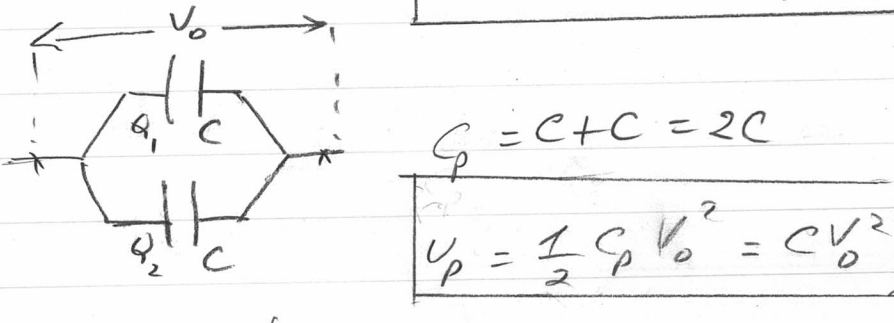 V₀
Q₁ C
Q₂ C
C_p = C + C = 2C
U_p = 1/2 C_p V₀² = CV₀²